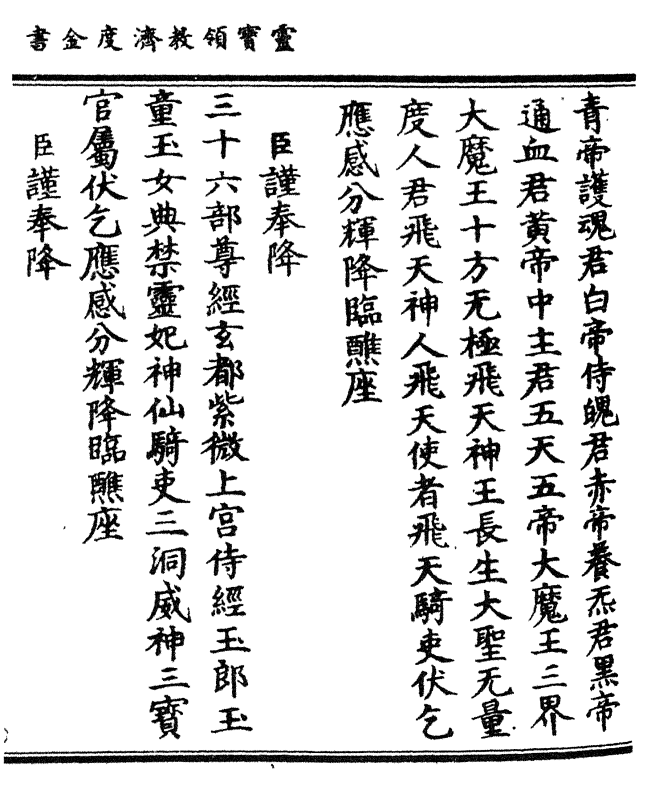 靈寶領教濟度金書
青帝護魂君白帝侍魄君赤帝養炁君黑帝
通血君黄帝中主君五天五帝大魔王三界
大魔王十方无極飛天神王長生大聖无量
度人君飛天神人飛天使者飛天騎吏伏乞
應感分輝降臨醮座
臣謹奉降
三十六部尊經玄都紫微上宫侍經玉郎玉
童玉女典禁靈妃神仙騎吏三洞威神三寳
官屬伏乞應感分輝降臨醮座
臣謹奉降